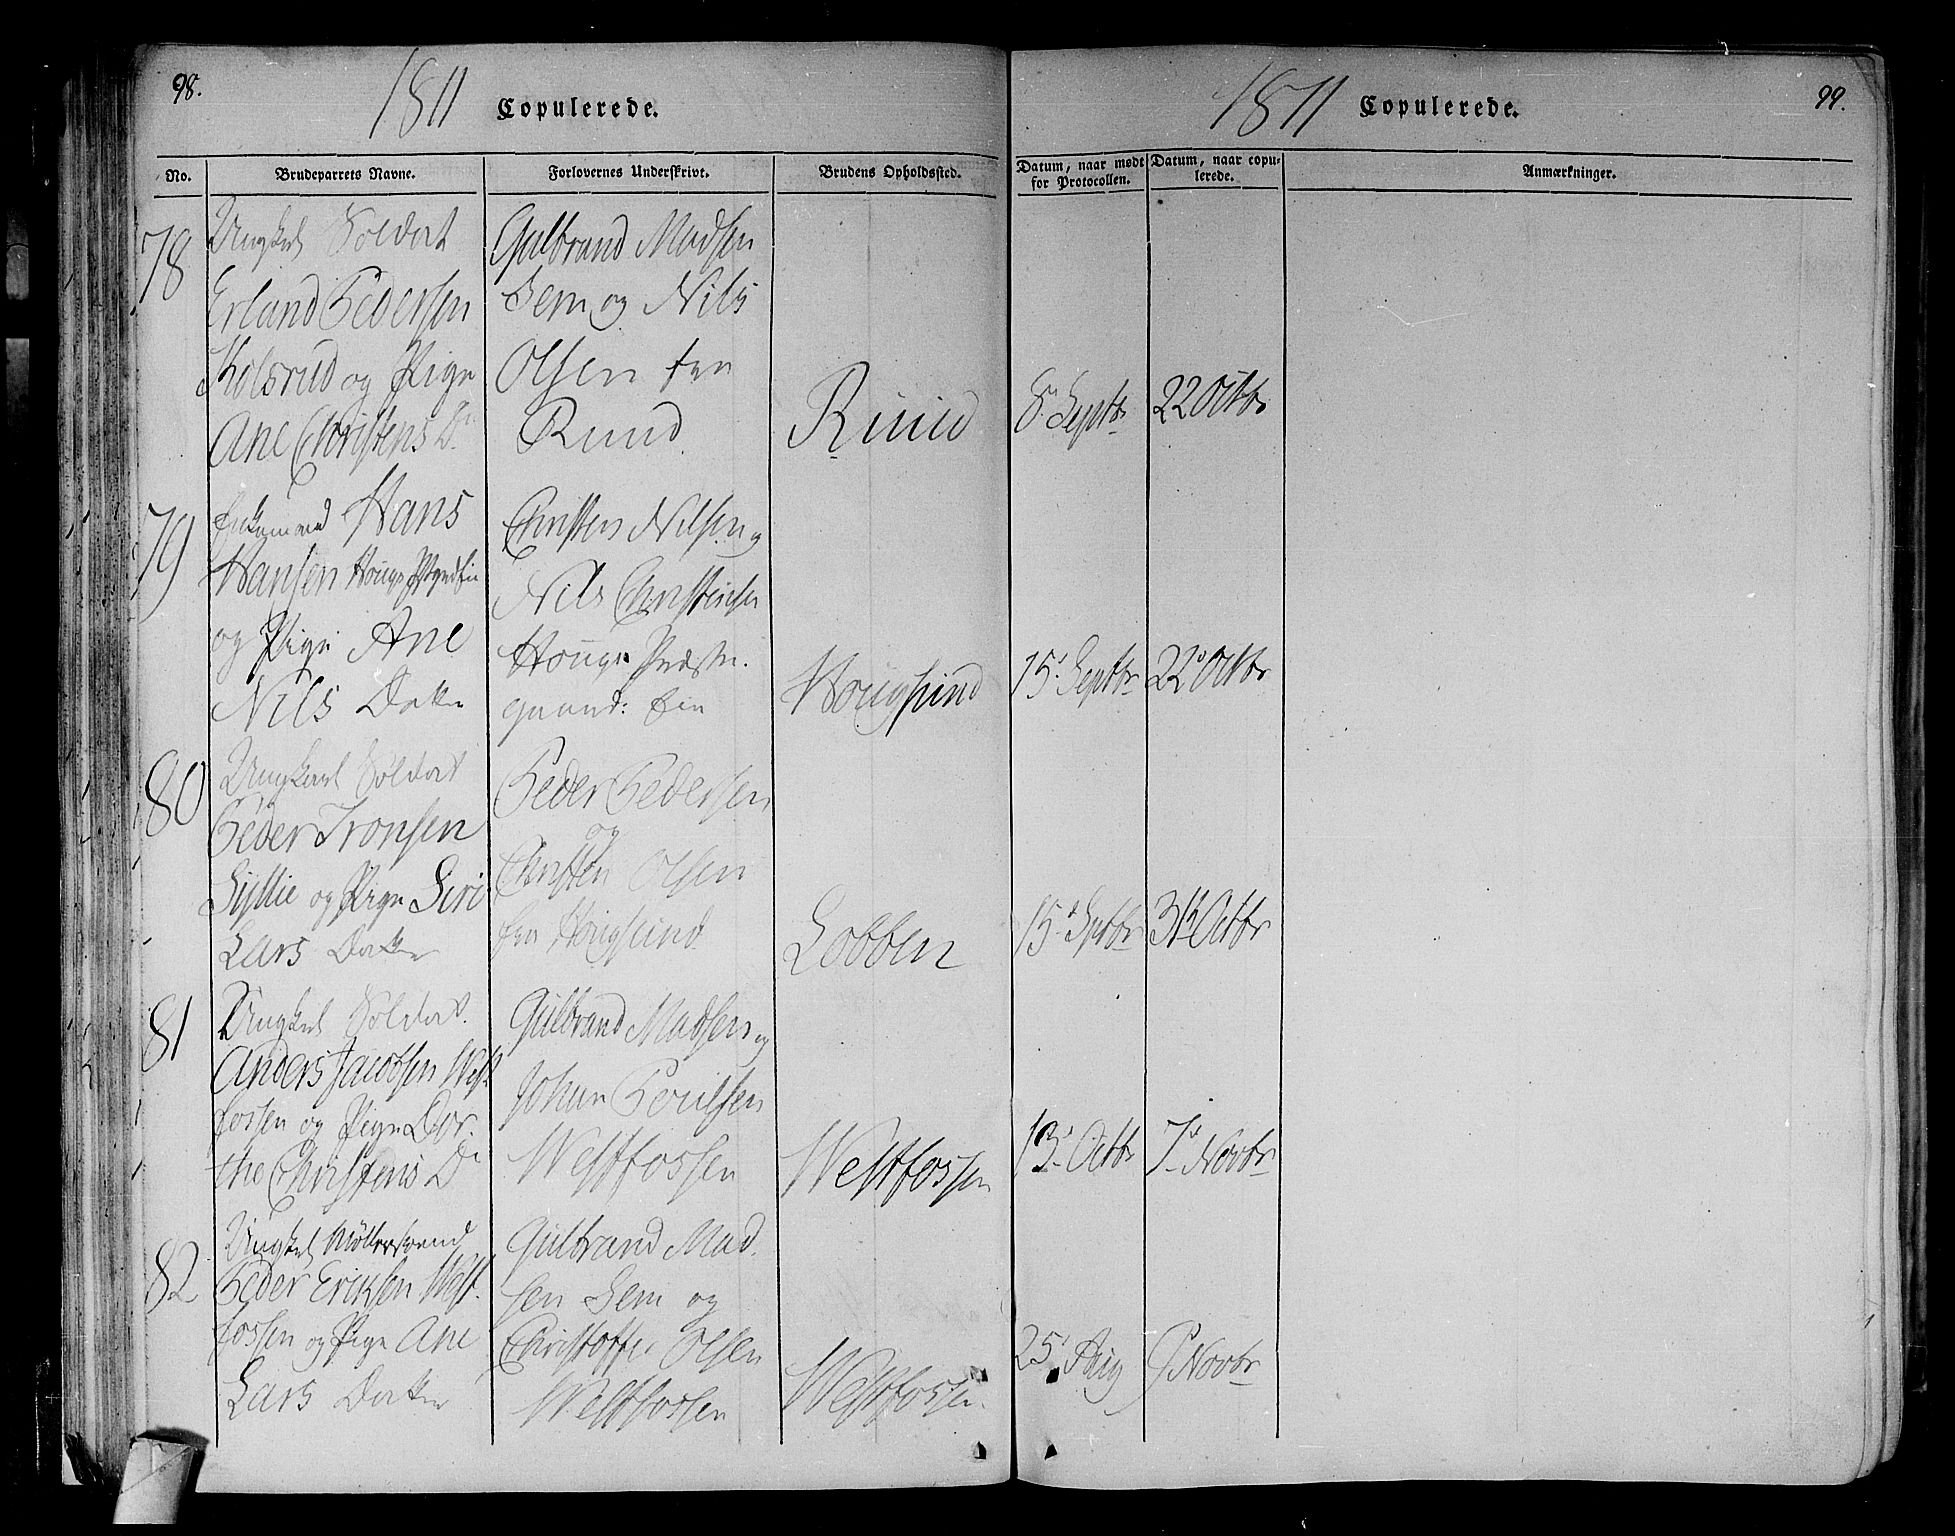 98.
1811 Copulerede.
No.
Brudeparrets Navne.
Forlovernes Underskrivt.
Brudens Opholdssted.
78
Ungkarl Soldat
Erland Pedersen
Kolsrud og Pige
Ane Christens D.
Gulbrand Madsen
Sem og Nils
Olsen fra
Ruud
Ruud
79
Enkemand Hans
Hansen Houge
og Pige Ane
Nils Datter
Christen Nilsen og
Nils Christensen
Houg Præste
Hougsund
80
Ungkarl Soldat
Peder Tronsen
og Pige Siri
Lars Datter
Peder Pedersen
og
Christen Olsen
fra Hougsund
Lobben
81
Ungkarl Soldat
Anders Jacobsen West
fossen og Pige Dor
the Christens D
Gulbrand Madsen og
Johan Poulsen
Westfossen
Westfossen
82
Ungkarl Møllersvend
Peder Eriksen West
fossen og Pige Ane
Lars Datter
Gulbrand Mad
sen Sem og
Christoffer Olsen
Westfossen
Westfossen.
1811 Copulerede.
99.
Datum, naar mødt
for Protocollen.
Datum, naar copu-
lerede.
Anmærkninger.
8 Septbr
22 Octbr
15 Septbr
22 Octbr
15 Septbr
31 Octbr
13 Octbr
7 Novbr
25 Aug
9 Novbr